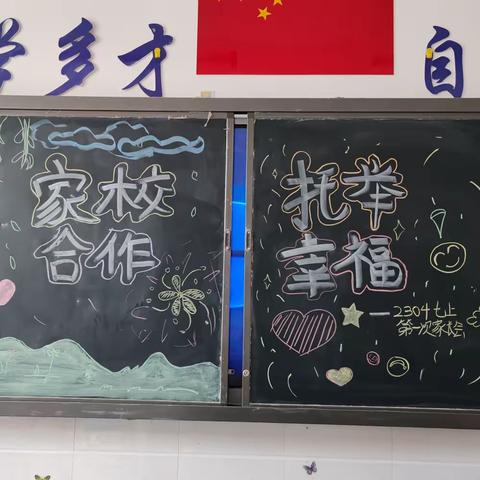 学多才 自
家校
合作
托举
幸福
—2304七上
第一次家长会